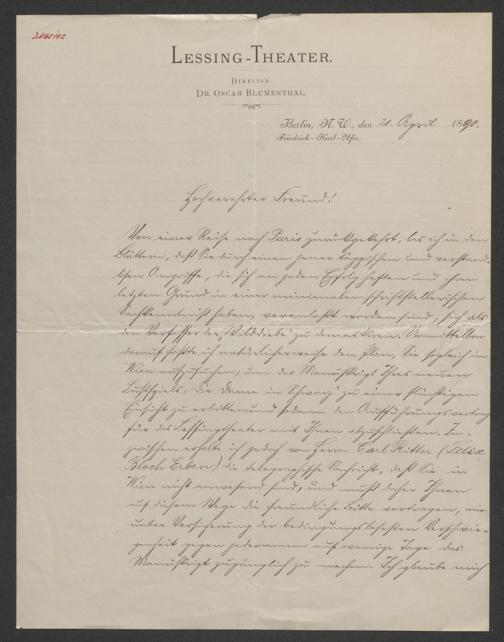 LESSING-THEATER.
DIRECTOR:
DR. OSCAR BLUMENTHAL.
Berlin, N. W., den 20. April 1890.
Friedrich-Karl-Ufer.
Hochverehrter Freund!
Von einer Reise nach Paris zurückgekehrt, las ich in den
Blättern, daß Sie durch einen jener läppischen und verständ-
Angriffe, die sich an jeden Erfolg heften und ihren
letzten Grund in einer minimalen schriftstellerischen
Sachkenntniß haben, veranlaßt worden sind, sich als
den Verfasser der „Wilddiebe" zu demaskiren. Unmittelbar
darauf faßte ich natürlicherweise den Plan, Sie sogleich in
Wien aufzusuchen, um das Manuskript Ihres neuen
Lustspiels „Die Dame in Schwarz" zu einer flüchtigen
Einsicht zu erbitten und sodann den Aufführungsvertrag
für das Lessingtheater mit Ihnen abzuschließen. In-
zwischen erhalte ich jedoch von Herrn Carl Ritter (Felix
Bloch Erben) die telegraphische Nachricht, daß Sie in
Wien nicht anwesend sind, und muß daher Ihnen
auf diesem Wege die freundliche Bitte vortragen, mir
unter Versicherung der bedingungslosesten Verschwie-
genheit gegen jedermann auf wenige Tage das
Manuskript zugänglich zu machen. Ich glaube mich